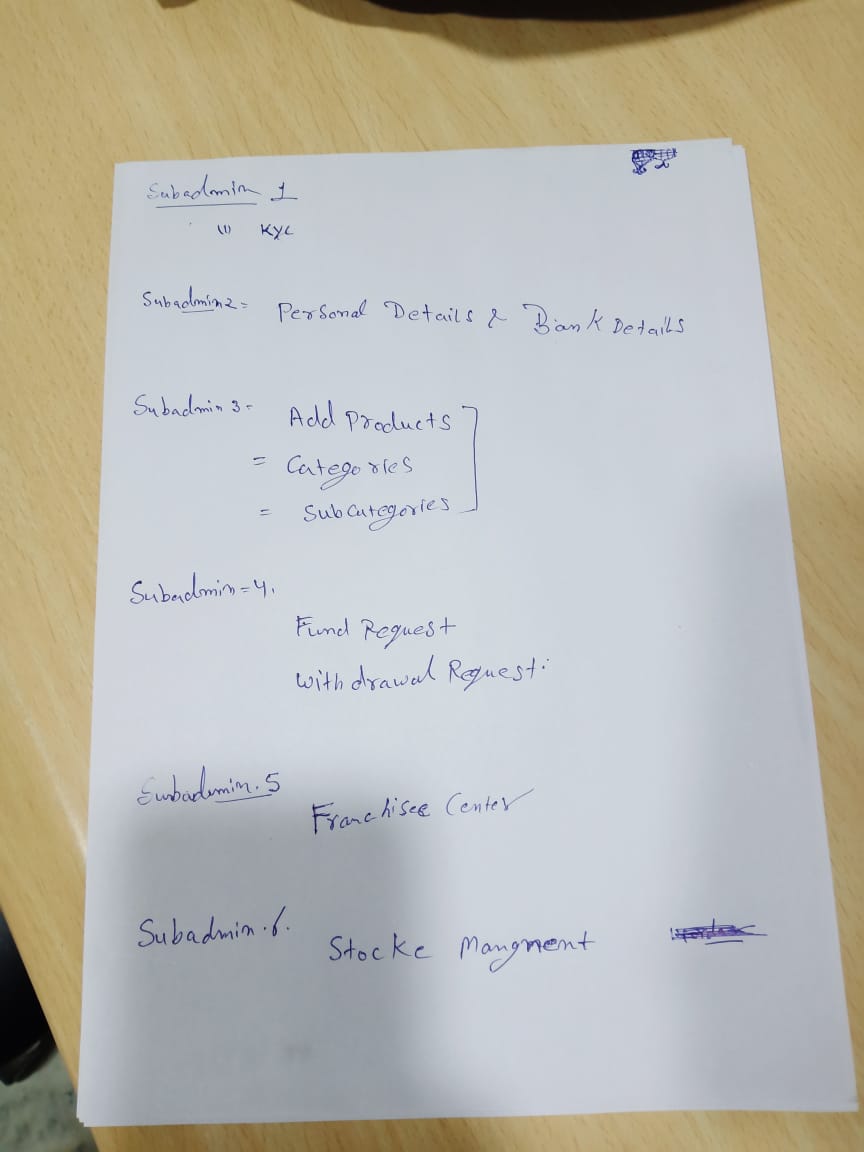 Subadmin 1
(1) KYC
Subadmin 2 = Personal Details & Bank Details
Subadmin 3 - Add Products
= Categories
= Subcategories
Subadmin = 4.
Fund Request
Withdrawal Request.
Subadmin. 5
Franchisee Center
Subadmin. 6.
Stocke Mangment